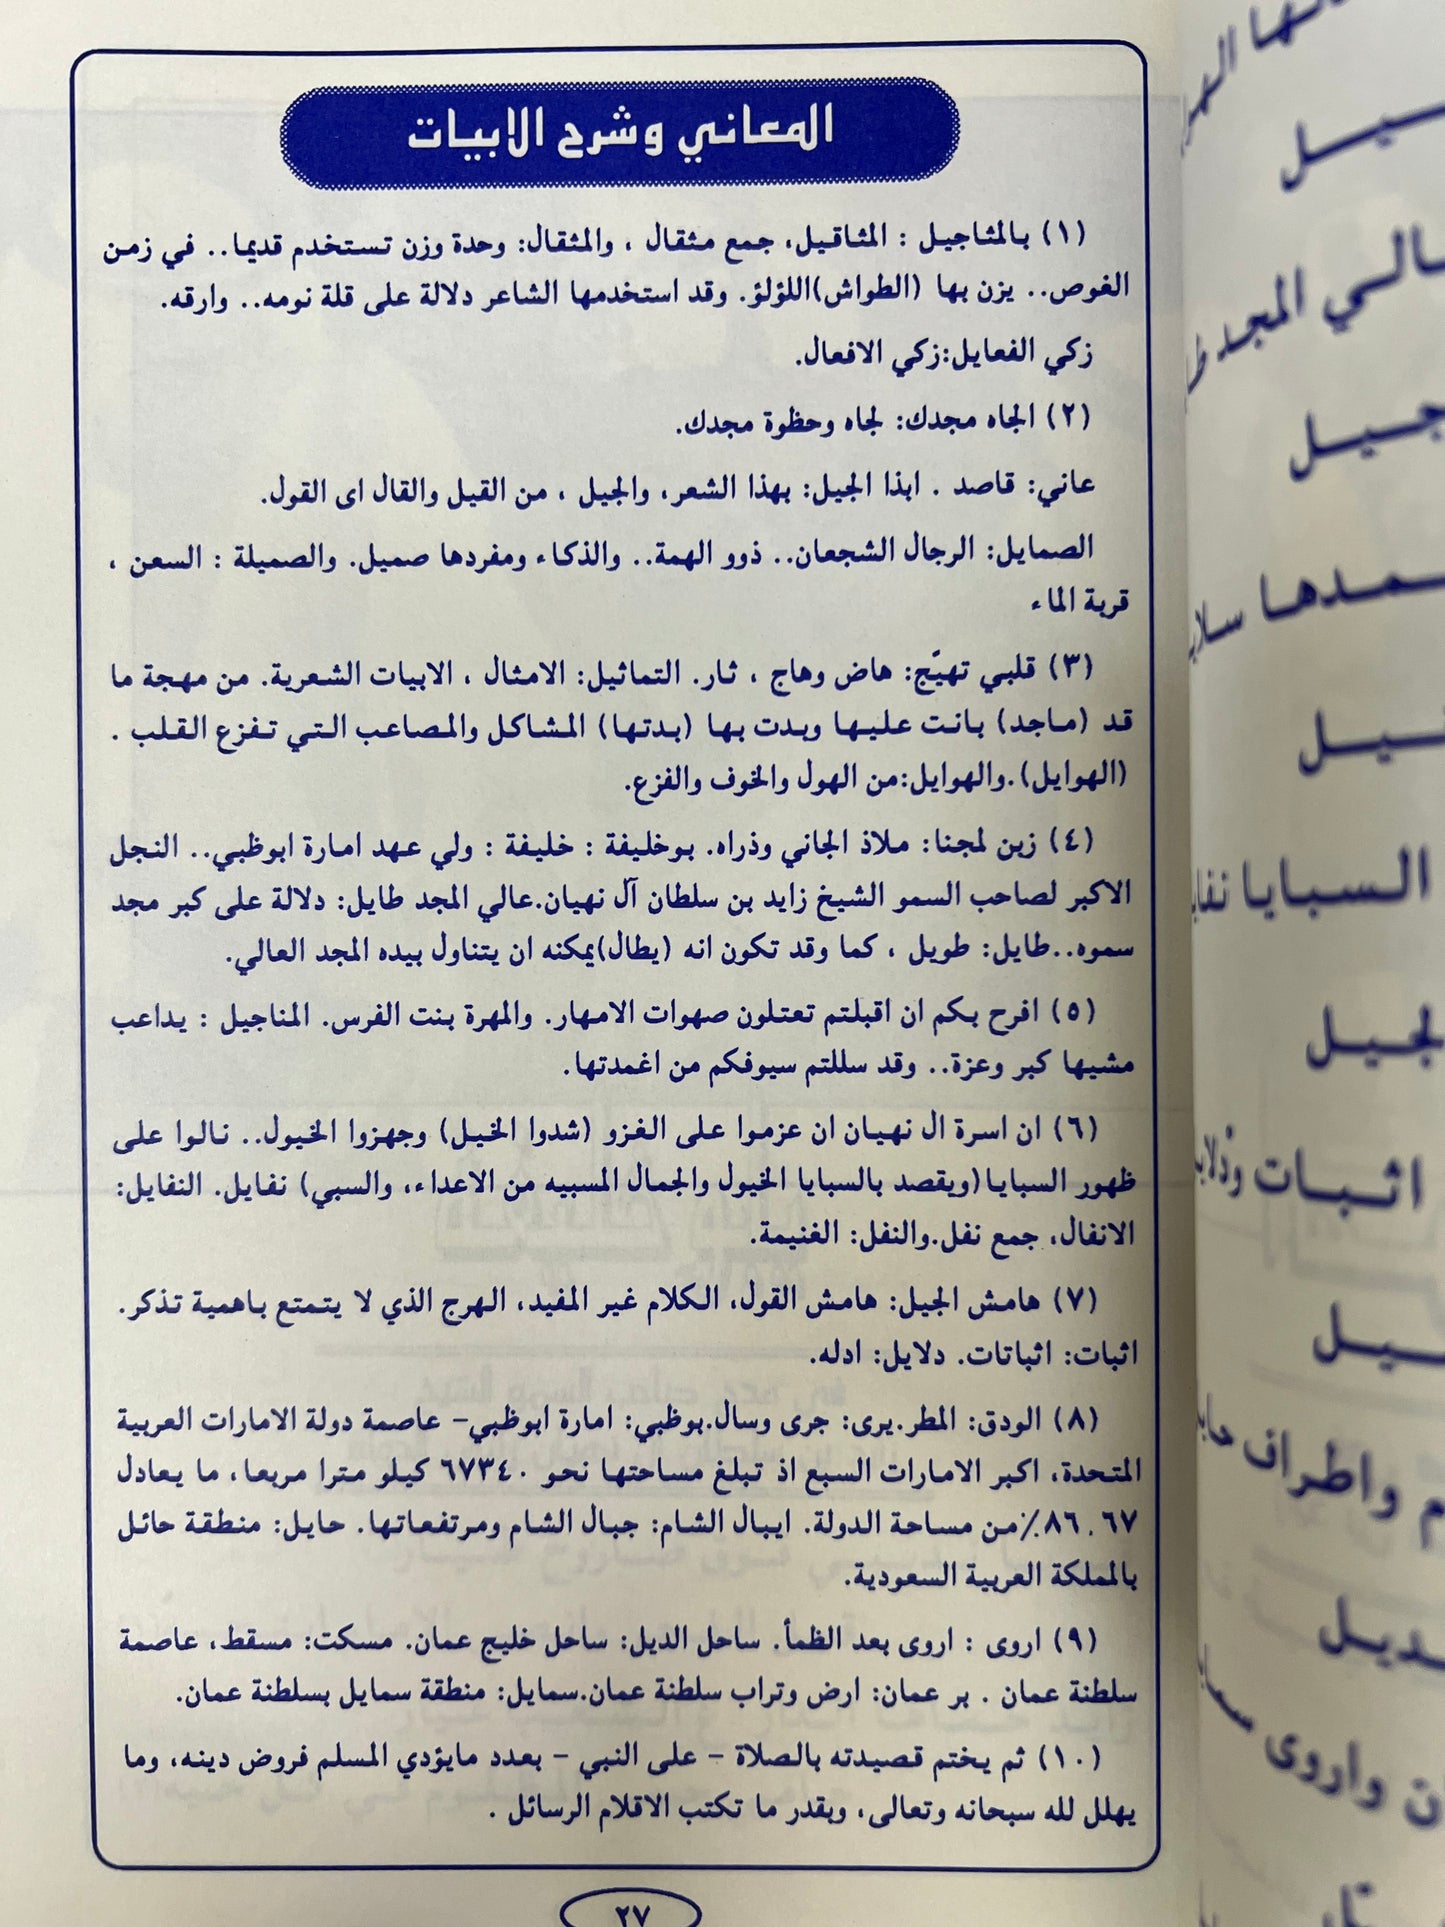 المعاني وشرح الابيات
(١) بالمثاجيل : المثاقيل، جمع مثقال ، والمثقال: وحدة وزن تستخدم قديما.. في زمن
الغوص.. يزن بها (الطواش)اللؤلؤ. وقد استخدمها الشاعر دلالة على قلة نومه.. وارقه.
زكي الفعايل:زكي الافعال.
(٢) الجاه مجدك: لجاه وحظوة مجدك.
عاني: قاصد . ابذا الجيل: بهذا الشعر، والجيل ، من القيل والقال اى القول.
الصمايل: الرجال الشجعان.. ذوو الهمة.. والذكاء ومفردها صميل. والصميلة : السعن ،
قربة الماء
(٣) قلبي تهيّج: هاض وهاج ، ثار. التماثيل: الامثال ، الابيات الشعرية. من مهجة ما
قد (ماجد) بانت عليها وبدت بها (بدتها) المشاكل والمصاعب التي تفزع القلب .
(الهوايل).والهوايل:من الهول والخوف والفزع.
(٤) زبن لمجنا: ملاذ الجاني وذراه. بوخليفة : خليفة : ولي عهد امارة ابوظبي.. النجل
الاكبر لصاحب السمو الشيخ زايد بن سلطان آل نهيان.عالي المجد طايل: دلالة على كبر مجد
سموه..طايل: طويل ، كما وقد تكون انه (يطال)يمكنه ان يتناول بيده المجد العالي.
(٥) افرح بكم ان اقبلتم تعتلون صهوات الامهار. والمهرة بنت الفرس. المناجيل : يداعب
مشيها كبر وعزة.. وقد سللتم سيوفكم من اغمدتها.
(٦) ان اسرة ال نهيان ان عزموا على الغزو (شدوا الخيل) وجهزوا الخيول.. نالوا على
ظهور السبايا(ويقصد بالسبايا الخيول والجمال المسبيه من الاعداء، والسبي) نفايل. النفايل:
الانفال، جمع نفل.والنفل: الغنيمة.
(٧) هامش الجيل: هامش القول، الكلام غير المفيد، الهرج الذي لا يتمتع باهمية تذكر.
اثبات: اثباتات. دلايل: ادله.
(٨) الودق: المطر.يرى: جرى وسال.بوظبي: امارة ابوظبي- عاصمة دولة الامارات العربية
المتحدة، اكبر الامارات السبع اذ تبلغ مساحتها نحو ٦٧٣٤٠ كيلو مترا مربعا، ما يعادل
٨٦,٦٧٪من مساحة الدولة. ايبال الشام: جبال الشام ومرتفعاتها. حايل: منطقة حائل
بالمملكة العربية السعودية.
(٩) اروى : اروى بعد الظمأ. ساحل الديل: ساحل خليج عمان. مسكت: مسقط، عاصمة
سلطنة عمان . بر عمان: ارض وتراب سلطنة عمان.سمايل: منطقة سمايل بسلطنة عمان.
(١٠) ثم يختم قصيدته بالصلاة - على النبي - بعدد مايؤدي المسلم فروض دينه، وما
يهلل لله سبحانه وتعالى، وبقدر ما تكتب الاقلام الرسائل .
٢٧
الي المجد
السبايا
اثبات
واطراف
واروى